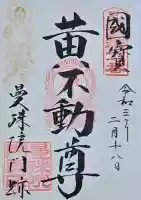 國寶
令和三年
二月十八日
黄不動尊
曼殊院門跡